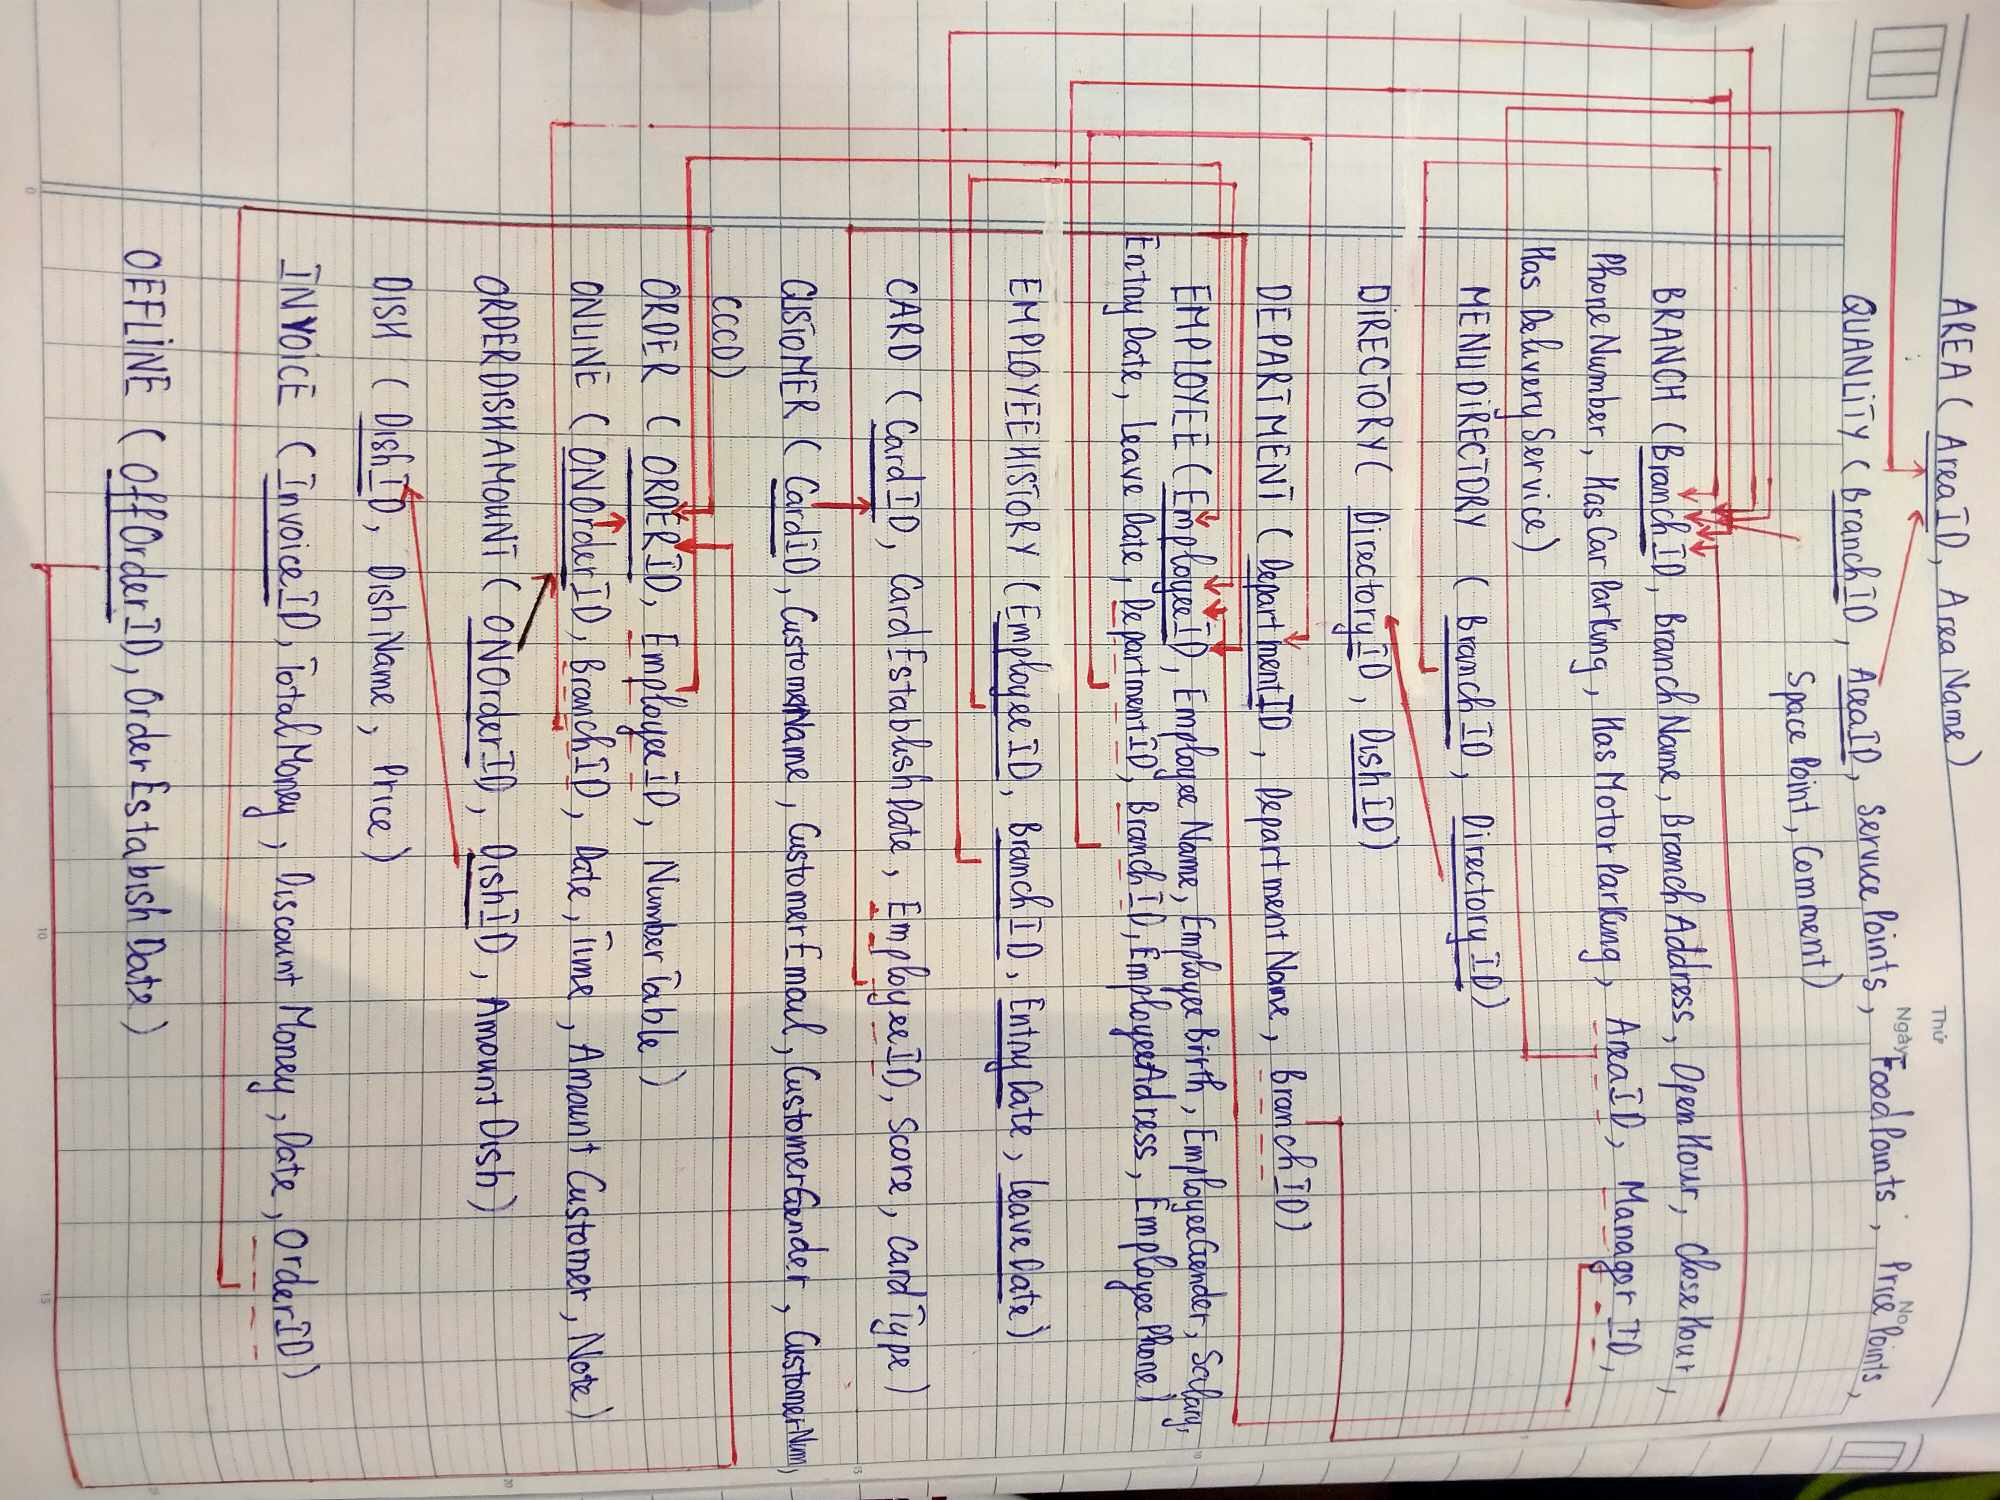 AREA ( AreaID, AreaName )
Thứ
Ngày No
QUANLiTY ( BranchID, AreaID, ServicePoints, FoodPoints, PricePoints,
SpacePoint, Comment )
BRANCH ( BranchID, BranchName, BranchAddress, OpenHour, CloseHour,
PhoneNumber, HasCarParking, HasMotorParking, AreaID, ManagerID,
Has DeliveryService )
MENUDiRECTORY ( BranchID, DirectoryID )
DiRECTORY ( DirectoryID, DishID )
DEPARTMENT ( DepartmentID, DepartmentName, BranchID )
EMPLOYEE ( EmployeeID, EmployeeName, EmployeeBirth, EmployeeGender, Salary,
EntryDate, LeaveDate, DepartmentID, BranchID, EmployeeAdress, EmployeePhone )
EMPLOYEEHISTORY ( EmployeeID, BranchID, EntryDate, LeaveDate )
CARD ( CardID, CardEstablishDate, EmployeeID, Score, CardType )
15
CUSTOMER ( CardID, CustomerName, CustomerEmail, CustomerGender, CustomerNum,
CCCD )
ORDER ( ORDERID, EmployeeID, NumberTable )
ONLINE ( ONOrderID, BranchID, Date, Time, Amount Customer, Note )
20
ORDERDISHAMOUNT ( ONOrderID, DishID, AmountDish )
DISH ( DishID, DishName, Price )
INVOICE ( InvoiceID, TotalMoney, Discount Money, Date, OrderID )
OFFLiNE ( OffOrderID, OrderEstabishDate )
0 10 15